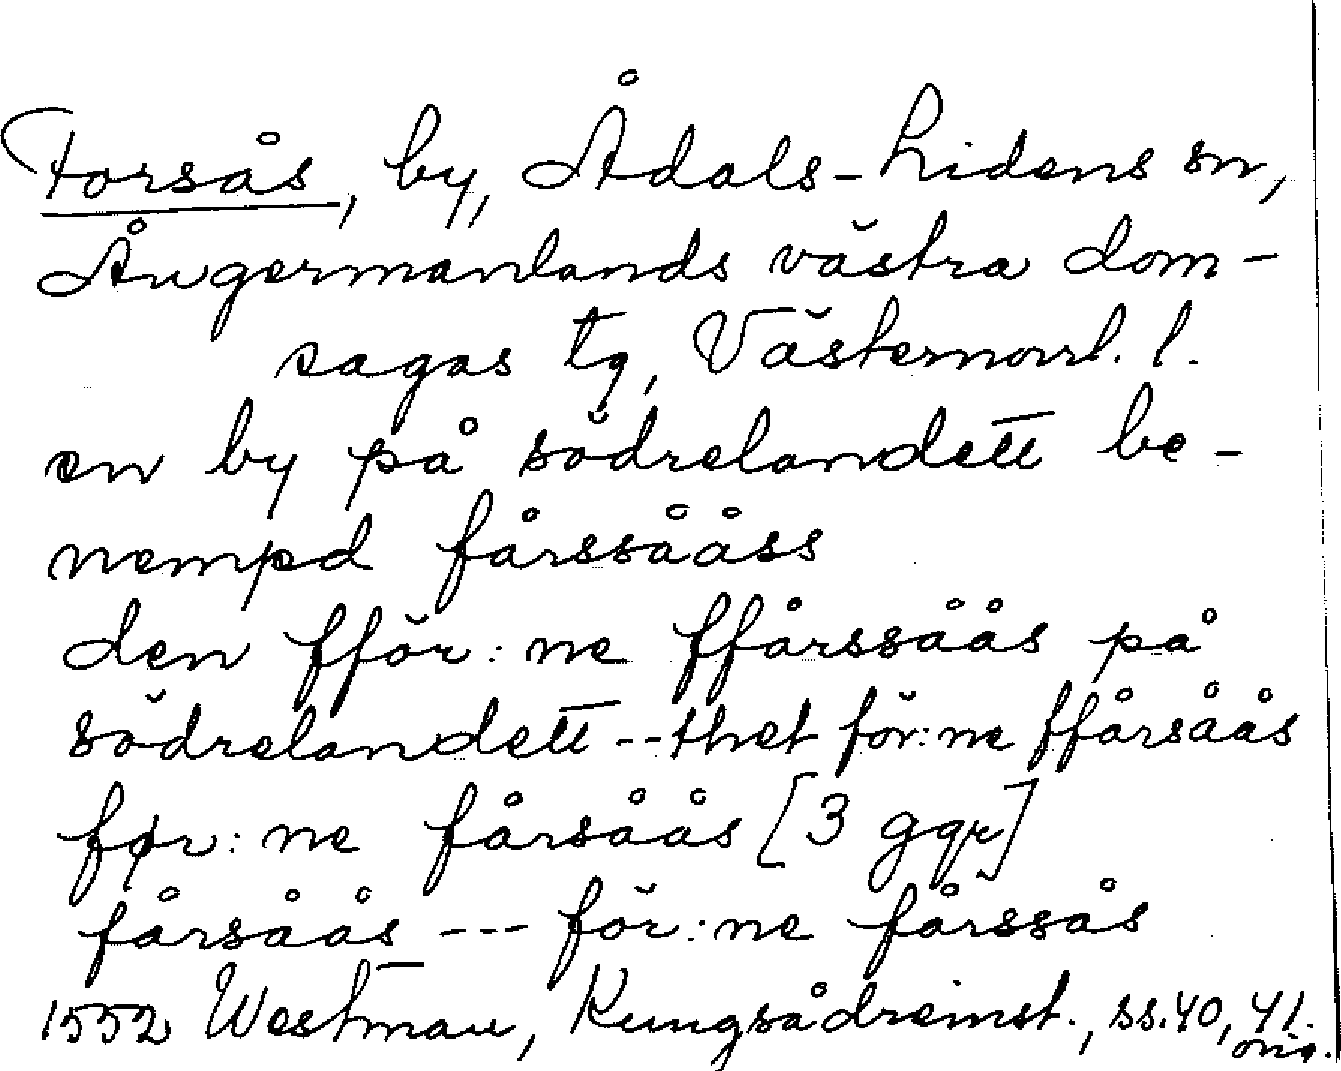 Forsås, by, Ådals-Lidens sn,
Ångermanlands västra dom-
sagas tg, Västernorrl. l.
en by på södrelandett be-
nempd fårssååss
den fför:ne ffårssåås på
södrelandett -- thet för:ne ffårsåås
før:ne fårsåås [3 ggr]
fårsåås --- för:ne fårssås
1552 Westman, Kungsådreinst., ss. 40, 41.
orig.